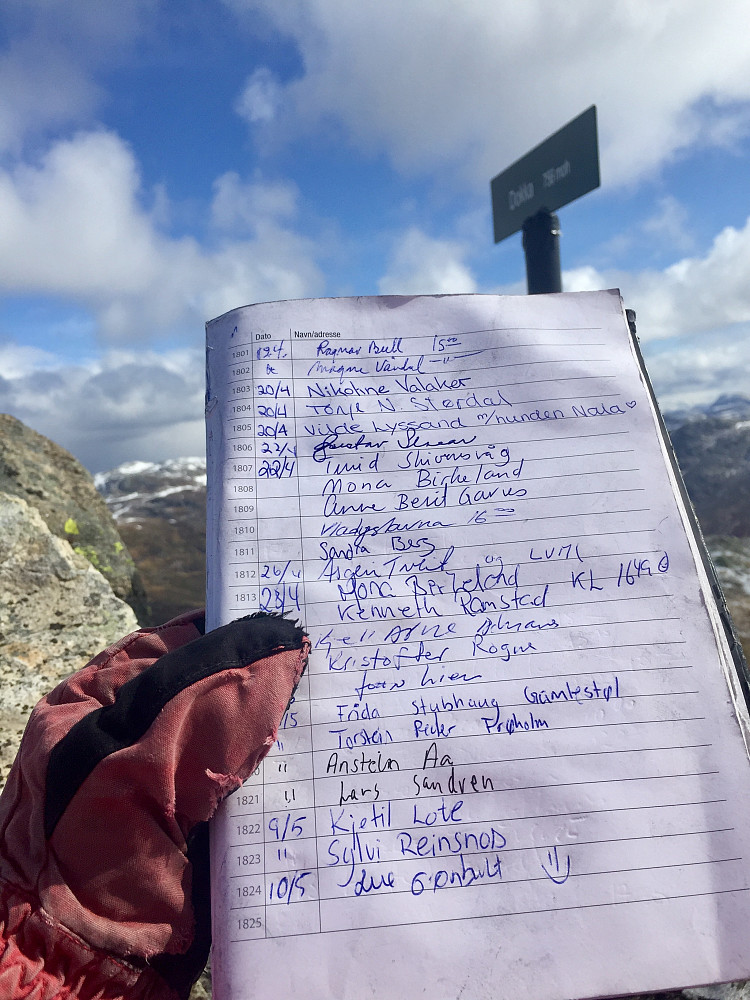 Dokka 756 moh
Dato Navn/adresse
1801 19.4. Ragnar Bull 15 00
1802 Magne Vandal — " —
1803 20/4 Nikoline Valaker
1804 20/4 Tonje N. Størdal
1805 20/4 Vilde Lyssand m/hunden Nala ♡
1806 22/4 Gustav
1807 22/4 Turid
1808 Mona Birkeland
1809 Anne Berit Garnes
1810 16 00
1811 Sandra Berg
1812 26/4 og LUMI
1813 28/4 Mona Birkeland KL 1649
Kenneth Ramstad
Kjell Arne
Kristoffer Rogne
/5 Frida Stubhaug Gamlestøl
" Torstein Prøholm
" Anstein Aa
1821 " Lars Sandven
1822 9/5 Kjetil Lote
1823 " Sylvi Reinsnos
1824 10/5
1825